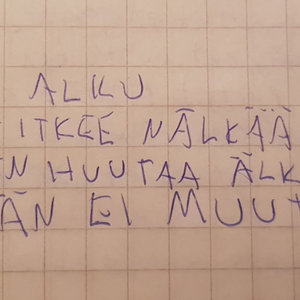 ALKU
ITKEE NÄLKÄÄ
N HUUTAA ÄLK
ÄN EI MUUT